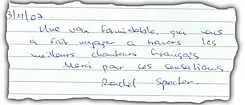 3/11/07.
Une voix formidable, qui nous
a fait voyager à travers les
meilleurs chanteurs français
Merci pour ces sensations
Rachel Specter.